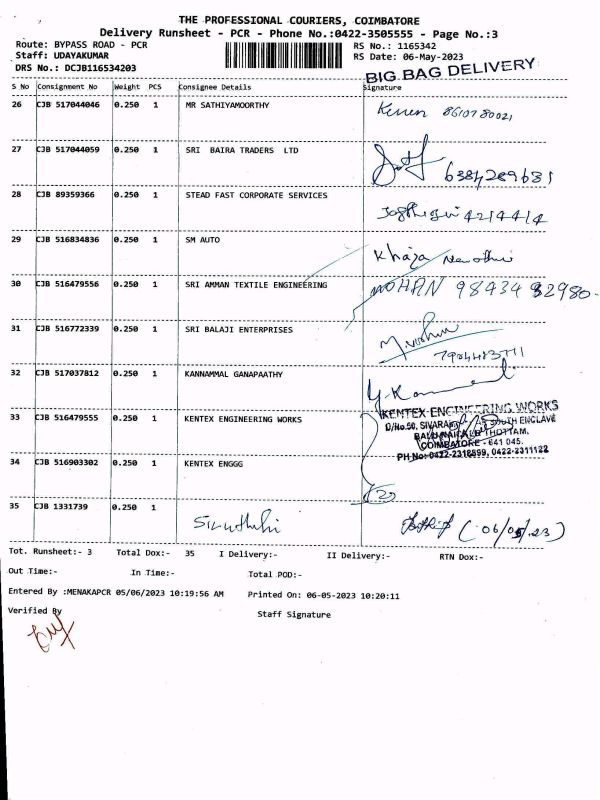 THE PROFESSIONAL COURIERS, COIMBATORE
Delivery Runsheet - PCR - Phone No.:0422-3505555 - Page No.:3
Route: BYPASS ROAD - PCR
RS No.: 1165342
Staff: UDAYAKUMAR
RS Date: 06-May-2023
DRS No.: DCJB116534203
BIG BAG DELIVERY
S No Consignment No Weight PCS Consignee Details Signature
26 CJB 517044046 0.250 1 MR SATHIYAMOORTHY 8610780021
27 CJB 517044059 0.250 1 SRI BAIRA TRADERS LTD 6384289681
28 CJB 89359366 0.250 1 STEAD FAST CORPORATE SERVICES 4214414
29 CJB 516834836 0.250 1 SM AUTO Khaja
30 CJB 516479556 0.250 1 SRI AMMAN TEXTILE ENGINEERING MOHAN
31 CJB 516772339 0.250 1 SRI BALAJI ENTERPRISES
32 CJB 517037812 0.250 1 KANNAMMAL GANAPAATHY
33 CJB 516479555 0.250 1 KENTEX ENGINEERING WORKS
KENTEX ENGINEERING WORKS
D/No.50, SOUTH ENCLAVE
THOTTAM,
COIMBATORE - 641 045.
PH No: 0422-2318899, 0422-2311122
34 CJB 516903302 0.250 1 KENTEX ENGGG
35 CJB 1331739 0.250 1 (06/05/23)
Tot. Runsheet:- 3 Total Dox:- 35 I Delivery:- II Delivery:- RTN Dox:-
Out Time:- In Time:- Total POD:-
Entered By :MENAKAPCR 05/06/2023 10:19:56 AM Printed On: 06-05-2023 10:20:11
Verified By Staff Signature